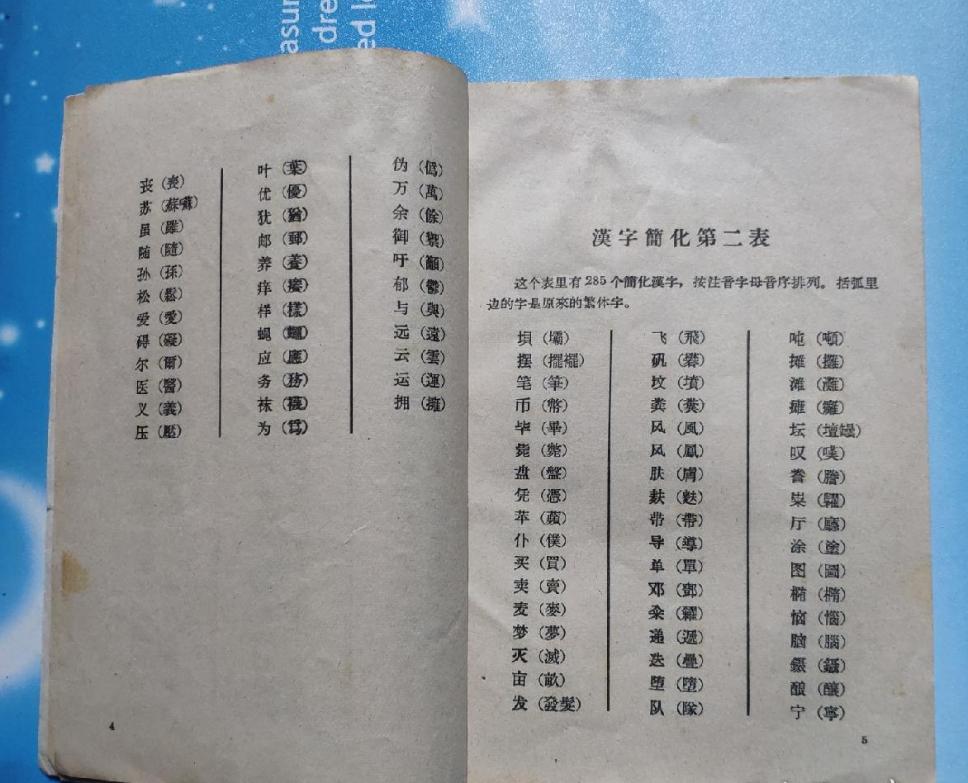 asur
dre
ed l
丧（喪）
苏（蘇囌）
虽（雖）
随（隨）
孙（孫）
松（鬆）
爱（愛）
碍（礙）
尔（爾）
医（醫）
义（義）
压（壓）
叶（葉）
优（優）
犹（猶）
邮（郵）
养（養）
痒（癢）
样（樣）
蝇（蠅）
应（應）
务（務）
袜（襪）
为（爲）
伪（僞）
万（萬）
余（餘）
御（禦）
吁（籲）
郁（鬱）
与（與）
远（遠）
云（雲）
运（運）
拥（擁）
4
漢字簡化第二表
这个表里有285个簡化漢字，按注音字母音序排列。括弧里
边的字是原來的繁体字。
坝（壩）
摆（擺襬）
笔（筆）
币（幣）
毕（畢）
毙（斃）
盘（盤）
凭（憑）
苹（蘋）
仆（僕）
买（買）
卖（賣）
麦（麥）
梦（夢）
灭（滅）
亩（畝）
发（發髮）
飞（飛）
矾（礬）
坟（墳）
粪（糞）
风（風）
凤（鳳）
肤（膚）
麸（麩）
带（帶）
导（導）
单（單）
邓（鄧）
籴（糴）
递（遞）
迭（疊）
堕（墮）
队（隊）
吨（噸）
摊（攤）
滩（灘）
瘫（癱）
坛（壇罎）
叹（嘆）
誊（謄）
粜（糶）
厅（廳）
涂（塗）
图（圖）
椭（橢）
恼（惱）
脑（腦）
镊（鑷）
酿（釀）
宁（寧）
5